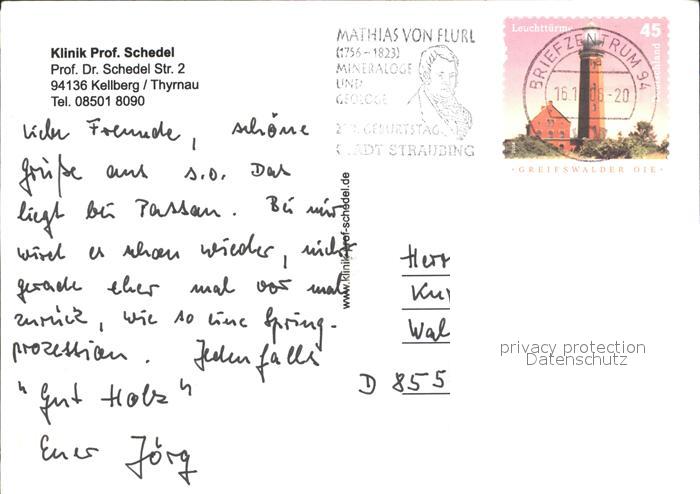 Klinik Prof. Schedel
Prof. Dr. Schedel Str. 2
94136 Kellberg / Thyrnau
Tel. 08501 8090
Liebe Freunde, schöne
Grüße aus s.o. Das
liegt bei Passau. Bei mir
wird es schon wieder, nicht
gerade eher mal vor mal
zurück, wie so eine Spring-
prozession. Jedenfalls
"Gut Holz"
Euer Jörg
MATHIAS VON FLURL
(1756 – 1823)
MINERALOGE
UND
GEOLOGE
GEBURTSTAG
STADT STRAUBING
Leuchttürme 45
Deutschland
BRIEFZENTRUM 94
-20
·GREIFSWALDER OIE·
www.klinik-prof-schedel.de
Herr
Ku
Wal
D 855
privacy protection
Datenschutz